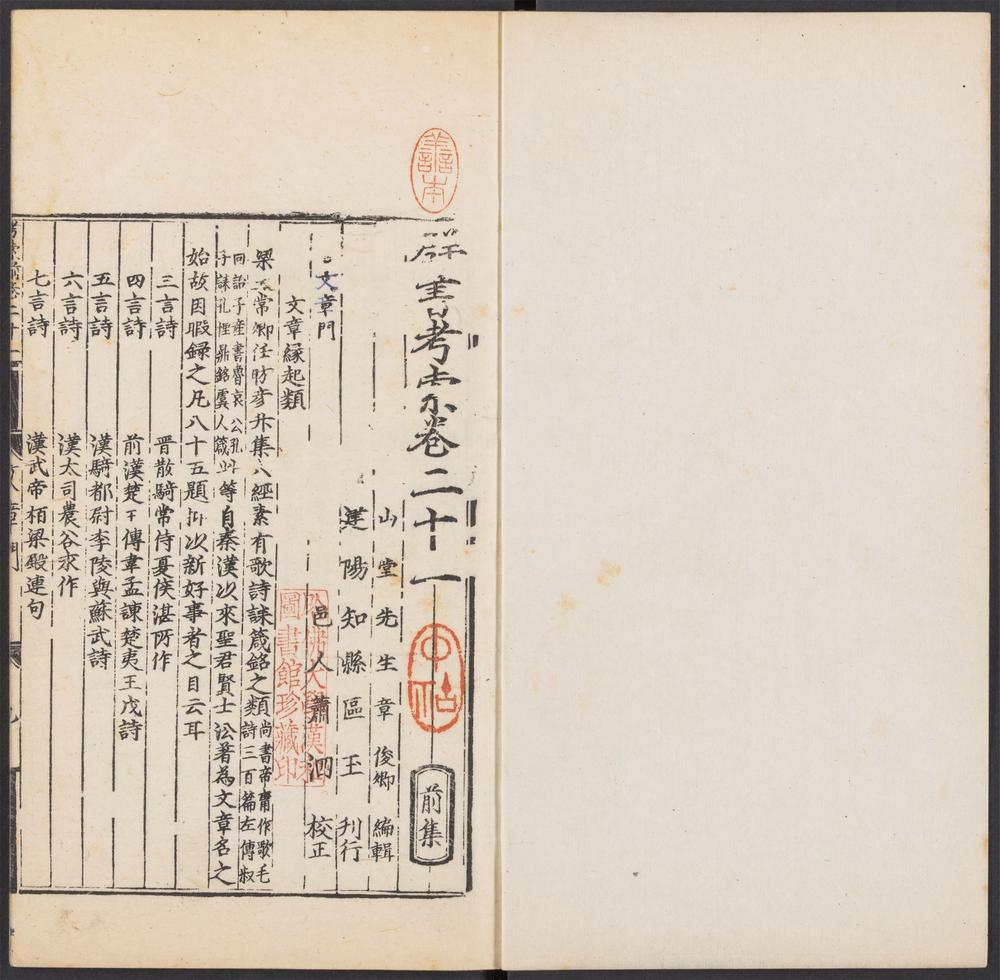 善本
群書考索卷二十一
前集
山堂先生章俊卿編輯
建陽知縣區玉刊行
邑人蕭泗校正
哈佛大學漢和圖書館珍藏印
文章門
文章緣起類
梁太常卿任昉彥升集六經素有歌詩誄箴銘之類尚書帝庸作歌毛詩三百篇左傳叔
向詒子產書魯哀公孔子誄孔悝鼎銘虞人箴此等自秦漢以來聖君賢士㳂著為文章名之
始故因暇録之凡八十五題抑以新好事者之目云耳
三言詩 晋散騎常侍夏侯湛所作
四言詩 前漢楚王傅韋孟諫楚夷王戊詩
五言詩 漢騎都尉李陵與蘇武詩
六言詩 漢大司農谷永作
七言詩 漢武帝栢梁殿連句